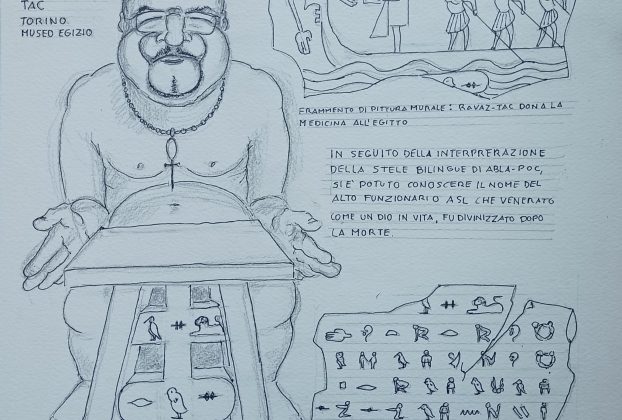 TAC
TORINO.
MUSEO EGIZIO
FRAMMENTO DI PITTURA MURALE: RAVAZ-TAC DONA LA
MEDICINA ALL'EGITTO
IN SEGUITO DELLA INTERPRERAZIONE
DELLA STELE BILINGUE DI ABLA-POC,
SI E' POTUTO CONOSCERE IL NOME DEL
ALTO FUNZIONARIO ASL CHE VENERATO
COME UN DIO IN VITA, FU DIVINIZZATO DOPO
LA MORTE.